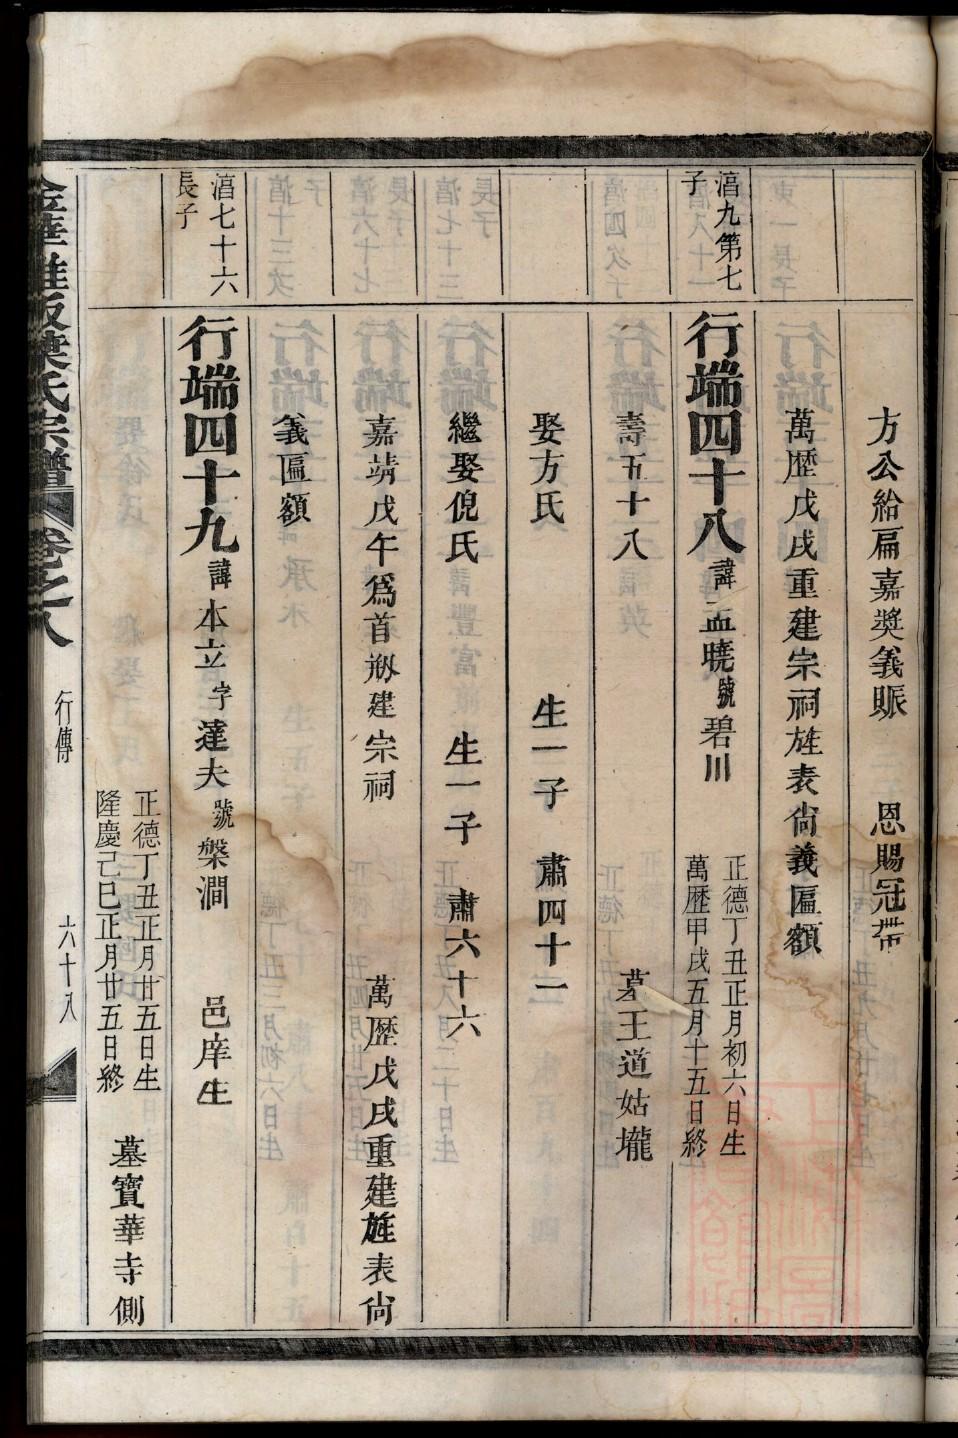 方公給扁嘉奬義賑　恩賜冠帶
萬歷戊戌重建宗祠旌表尙義匾額
湻九第七
子
行端四十八諱孟曉號碧川
正德丁丑正月初六日生
萬歷甲戌五月十五日終
壽五十八　墓王道姑壠
娶方氏　生一子　肅四十二
繼娶倪氏　生一子　肅六十六
嘉靖戊午爲首剏建宗祠　萬歷戊戌重建旌表尙
義匾額
湻七十六
長子
行端四十九諱本立字達夫號槃澗　邑庠生
正德丁丑正月廿五日生
隆慶己巳正月廿五日終
墓寶華寺側
葉氏宗譜　卷之八　行傳　六十八